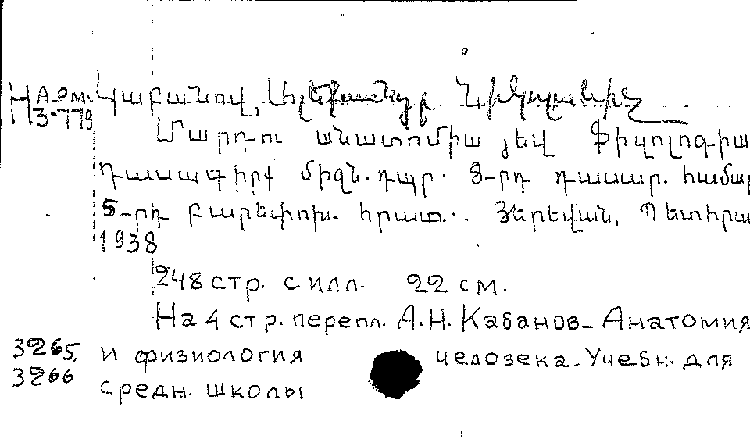 НА.рм. Կաբանով, Ալեքսանդր Նիկոլաևիչ
3-779
Մարդու անատոմիա յեվ Ֆիզիոլոգիա
Դասագիրք միջն. դպր. 8-րդ դասար. համար
5-րդ բարեփոխ. հրատ. Յերեվան, Պետհրա
1938
248 стр. с илл. 22 см.
На 4 стр. перепл. А.Н. Кабанов- Анатомия
3265, и физиология человека. Учебн. для
3266 средн. школы